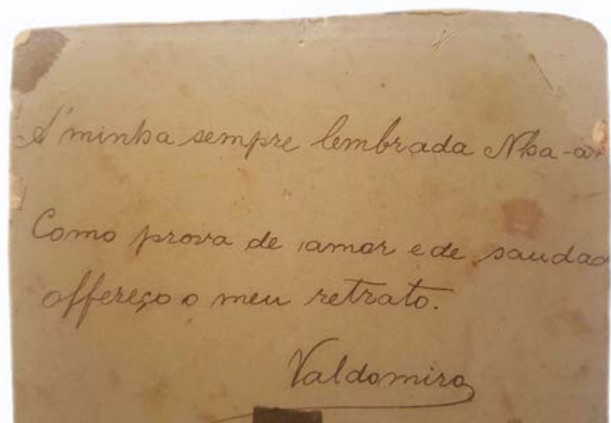 Á minha sempre lembrada Nha-
Como prova de amor e de saudad
offereço o meu retrato.
Valdomiro